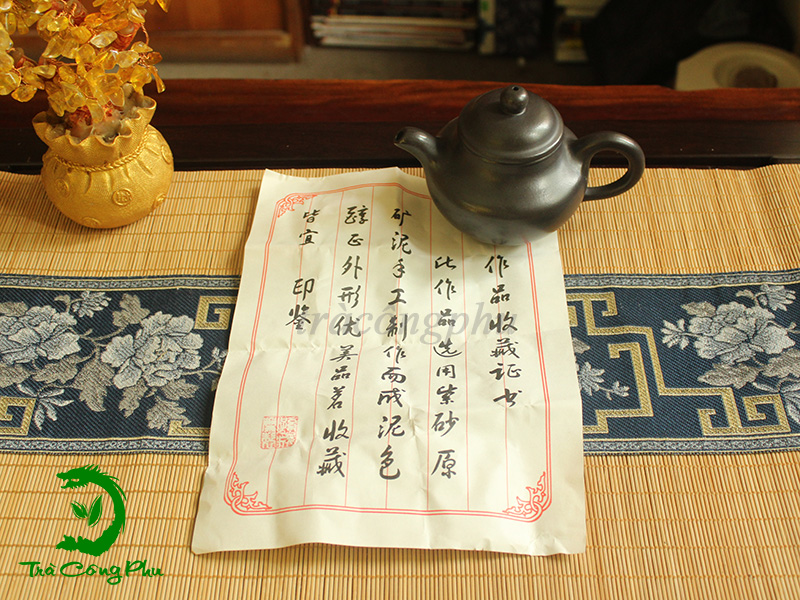 作品收藏证书
此作品选用紫砂原
矿泥手工制作而成泥色
醇正外形优美品茗收藏
皆宜
印鉴
tràcôngphu
Trà Công Phu